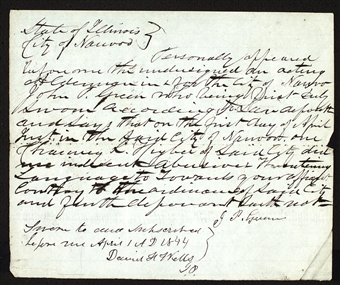 State of Illinois }
City of Nauvoo }
Personally appeared
before me the undersigned an acting
Alderman for the City of Nauvoo
John P. Green who being first duly
Sworn according to Law deposeth
and Says that on the first day of April
inst. in the Said City of Nauvoo one
Chauncy L. Higbee of Said City did
use indecent abusive threatening
Language to towards your affiant
Contrary to the ordinance of Said City
and further deponent saith not
J. P. Green
Sworn to and Subscribed
before me April 1 AD 1844
Daniel H Wells
JP